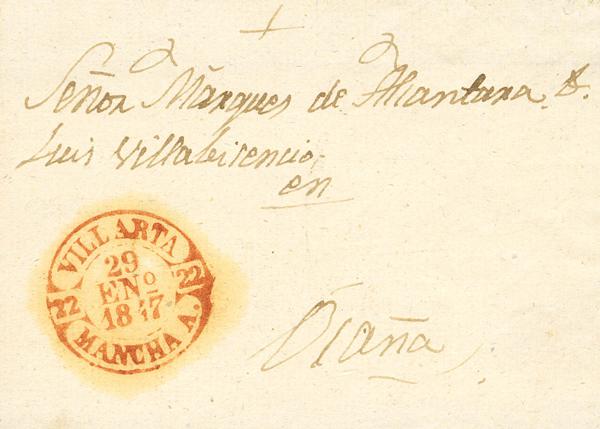 Señor Marques de Alcantara &.
Luis Villabisencio,
en
VILLARTA
29
ENº
1847
22
22
MANCHA A.
Ocaña